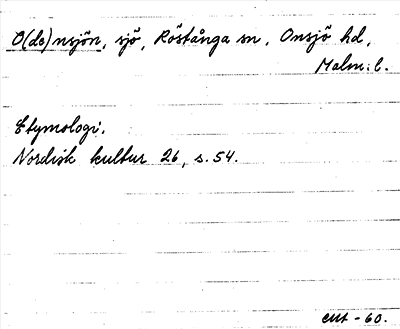 O(de)nsjön, sjö, Röstånga sn, Onsjö hd,
Malm. l.
Etymologi.
Nordisk kultur 26, s. 54.
-60.